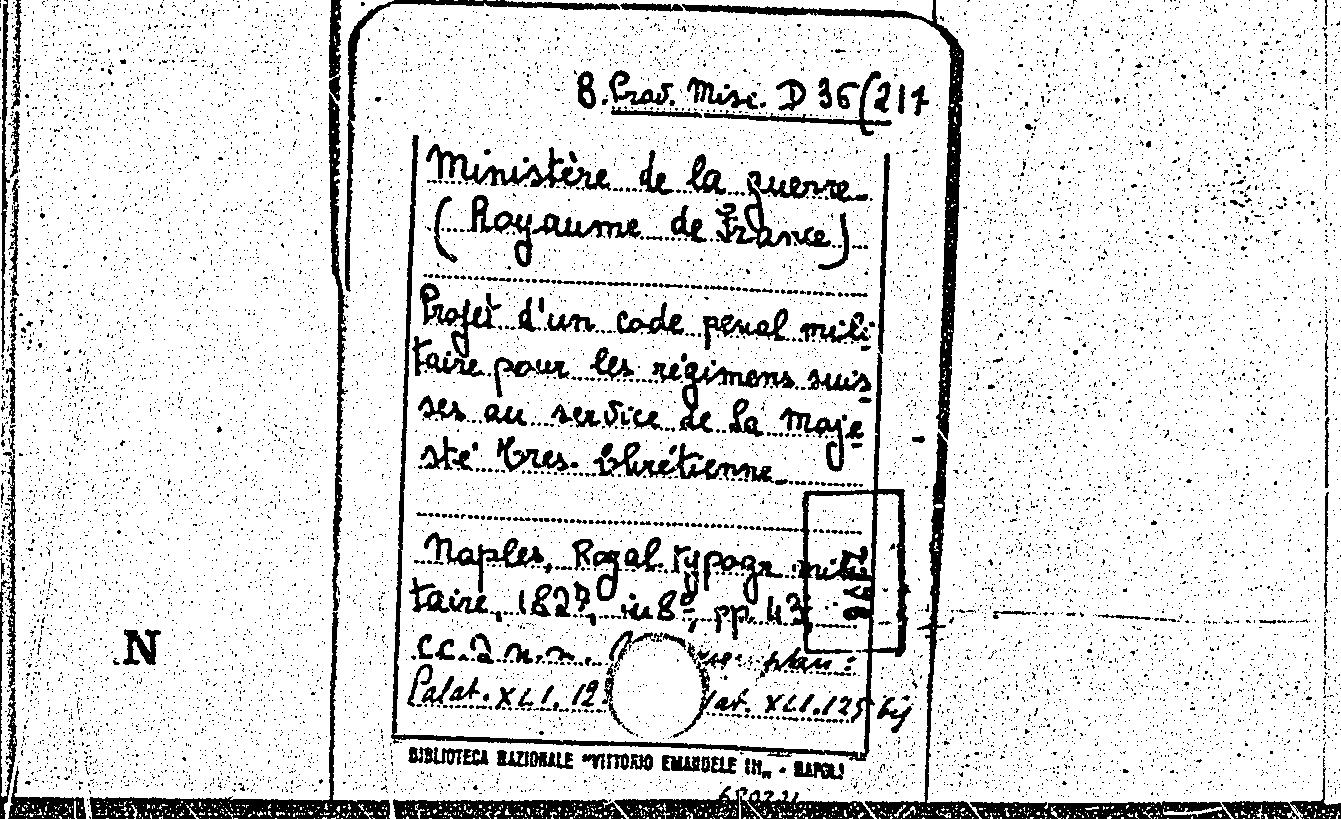 B. Prov. Misc. D 36(217
Ministère de la guerre
(Royaume de France)
Projet d'un code pénal mili
taire pour les régimens suis
ses au service de Sa Maje
sté Très-Chrétienne
Naples, Royal typogr. mili
taire, 1827, in 8º, pp. 43,
cc. 2 n.n.
Palat. XLI. 12 XLI. 125 bis
N
BIBLIOTECA NAZIONALE "VITTORIO EMANUELE III" - NAPOLI